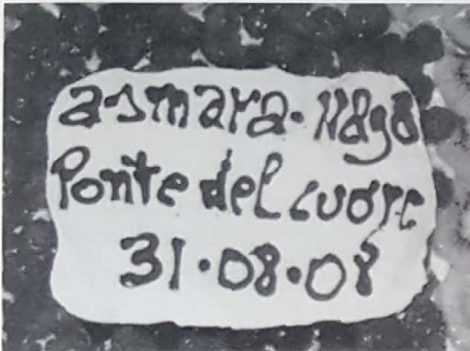 asmara-Nago
Ponte del cuore
31·08·08